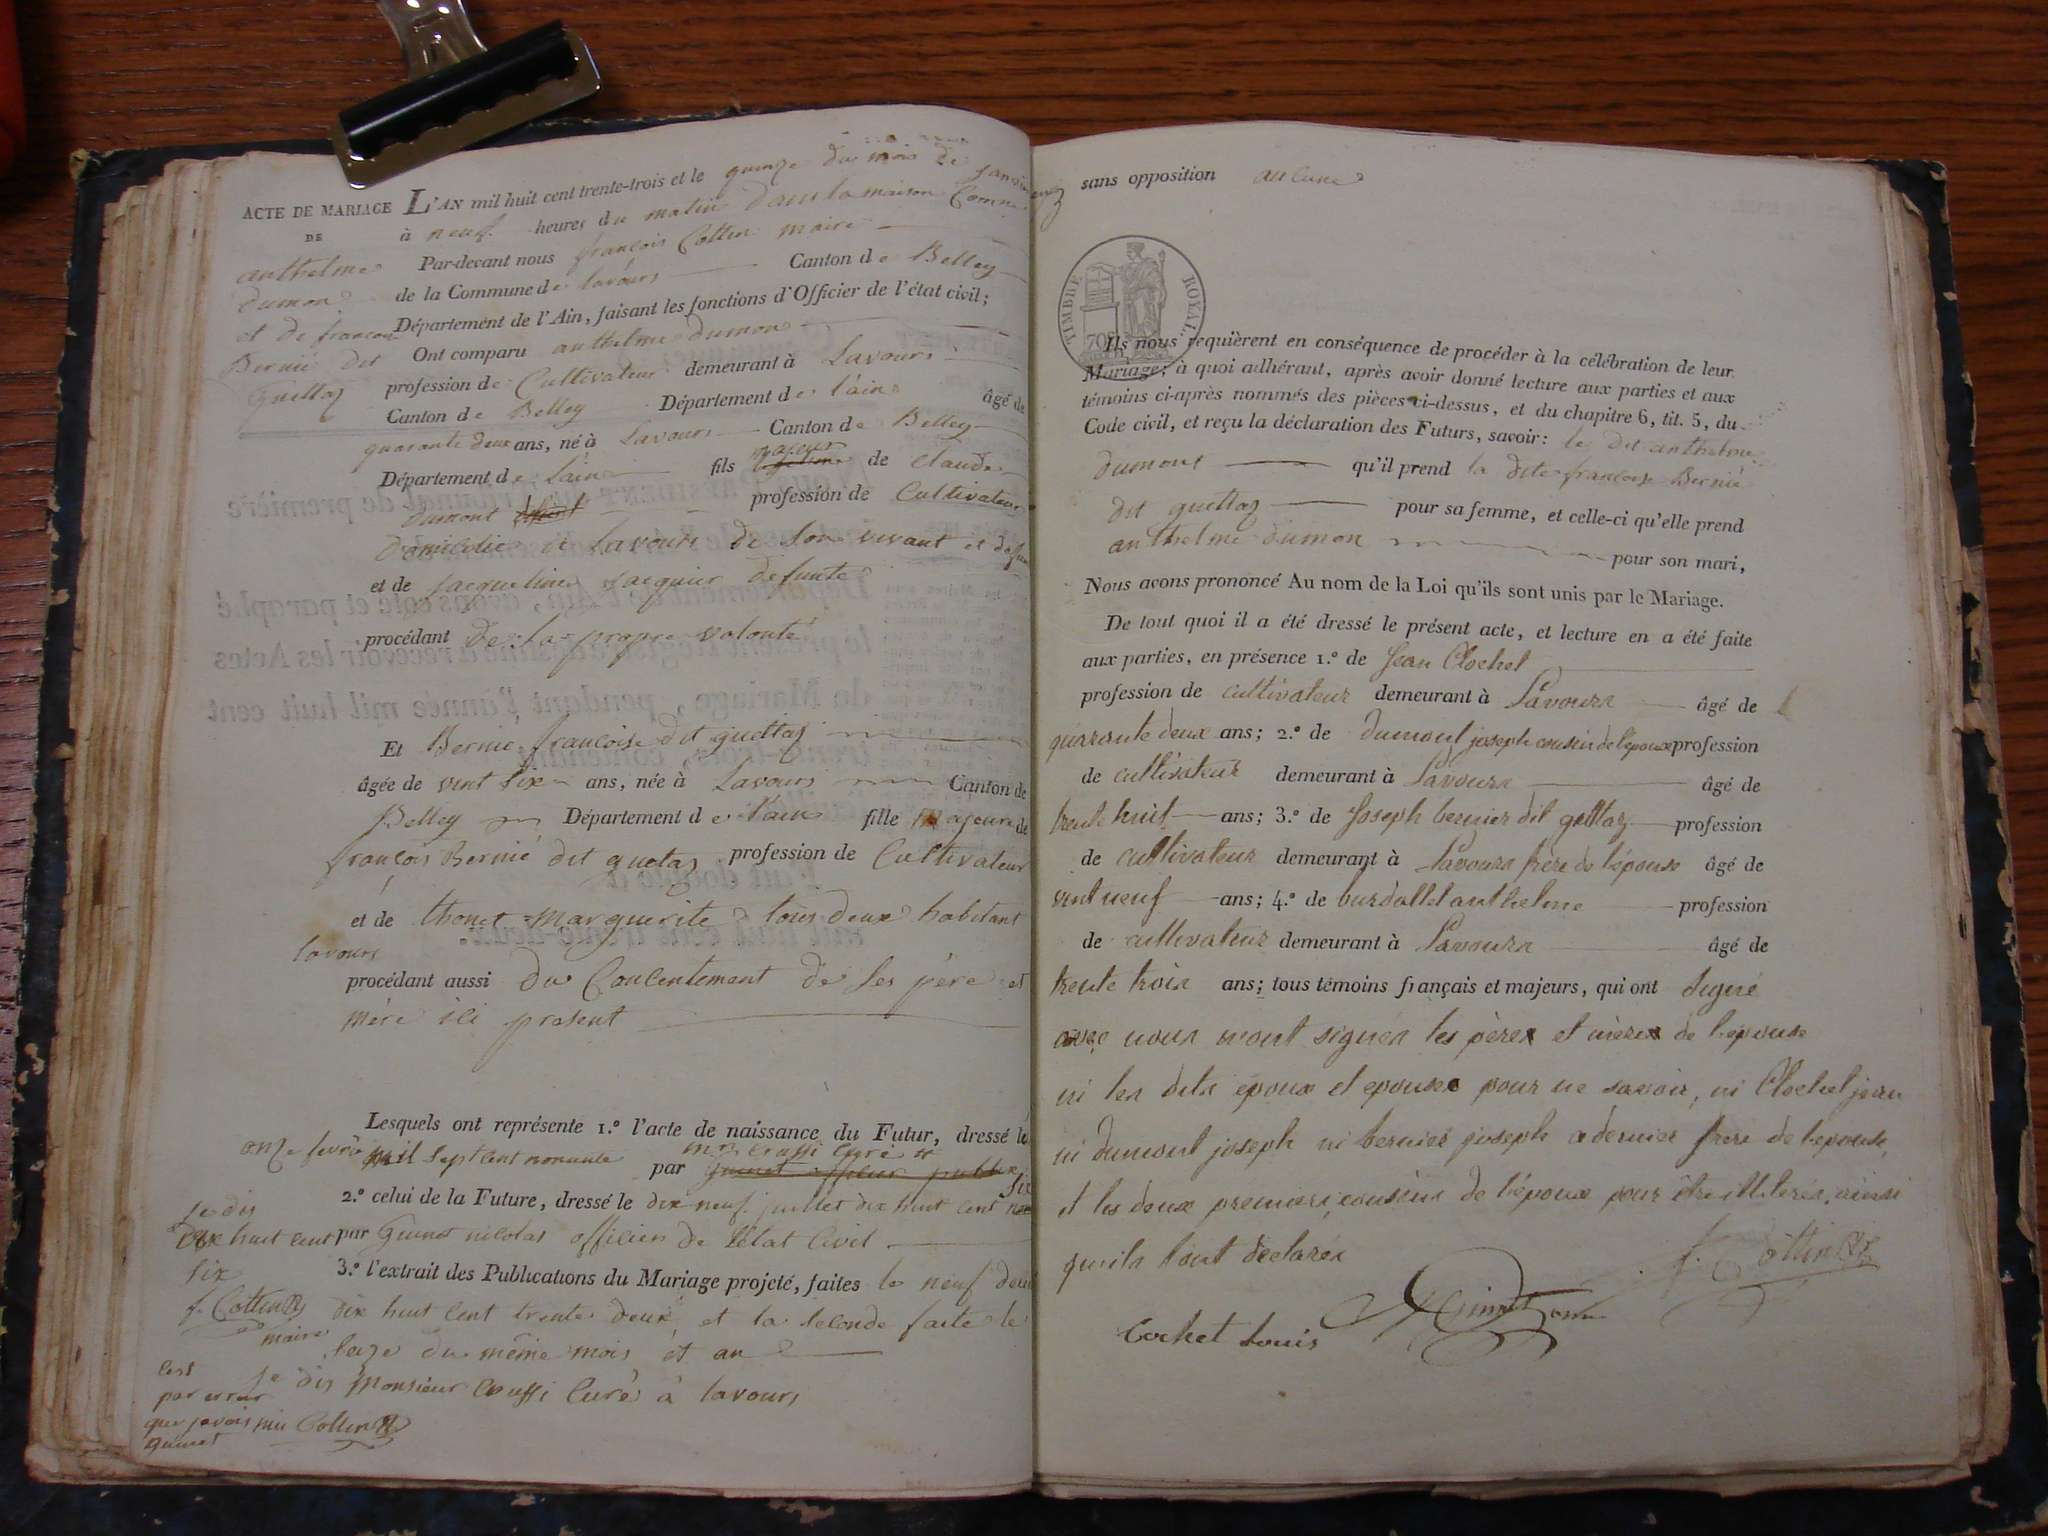 ACTE DE MARIAGE
DE
anthelme
dumon
et de francoise
Bernié dit
Guettaz
L'AN mil huit cent trente-trois et le quinze du mois de janvier
à neuf heures du matin dans la maison Commune
Par-devant nous françois Cottin maire
de la Commune de lavours Canton de Belley
Département de l'Ain, faisant les fonctions d'Officier de l'état civil;
Ont comparu anthelme dumon
profession de Cultivateur demeurant à Lavours
Canton de Belley Département de l'ain âgé de
quarante deux ans, né à Lavours Canton de Belley
Département de L'ain fils majeur de Claude
dumont profession de Cultivateur
domicilié à Lavours de son vivant et
et de jacqueline jacquier defunte
procédant de sa propre volonté
Et Bernie francoise dit guettaz
âgée de vint six ans, née à Lavours Canton de
Belley Département de l'ain fille majeure de
françois Bernié dit guetaz profession de Cultivateur
et de thonet marguerite tous deux habitant
lavours
procédant aussi du Concentement de ses père et
mère ici present
Lesquels ont représente 1.º l'acte de naissance du Futur, dressé le
onze fevrier mil sept cent nonante par mr crussi curé
2.º celui de la Future, dressé le dix neuf juillet dix huit cent six
par Guinet nicolas officier de l'Etat Civil
3.º l'extrait des Publications du Mariage projeté, faites le neuf
dix huit cent trente deux, et la seconde faite le
seize du même mois et an
je dis
dix huit cent
six
f. Cottin
maire
je dis Monsieur Crussi Curé à lavours
cest
par erreur
que javois mis Cottin
guinet
sans opposition aucune
TIMBRE ROYAL
70
Ils nous requièrent en conséquence de procéder à la célébration de leur
Mariage; à quoi adhérant, après avoir donné lecture aux parties et aux
témoins ci-après nommés des pièces ci-dessus, et du chapitre 6, tit. 5, du
Code civil, et reçu la déclaration des Futurs, savoir: le dit anthelme
dumont qu'il prend la dite francoise Bernié
dit guettaz pour sa femme, et celle-ci qu'elle prend
anthelme dumon pour son mari,
Nous avons prononcé Au nom de la Loi qu'ils sont unis par le Mariage.
De tout quoi il a été dressé le présent acte, et lecture en a été faite
aux parties, en présence 1.º de Jean Clochet
profession de cultivateur demeurant à Lavours âgé de
quarante deux ans; 2.º de dumont joseph cousin de l'epoux profession
de cultivateur demeurant à Lavours âgé de
trente huit ans; 3.º de Joseph bernier dit gettaz profession
de cultivateur demeurant à Lavours frère de l'épouse âgé de
vint neuf ans; 4.º de burdallet anthelme profession
de cultivateur demeurant à Lavours âgé de
trente trois ans; tous témoins français et majeurs, qui ont signé
avec nous n'ont signés les pères et mères de l'epouse
ni les dits epoux et epouse pour ne savoir, ni Clochet jean
ni dumont joseph ni bernier joseph a dernier frere de l'epouse,
et les deux premiers, cousins de l'époux pour être illiterés, ainsi
qu'ils l'ont declarés
f. Cottin
Cochet Louis